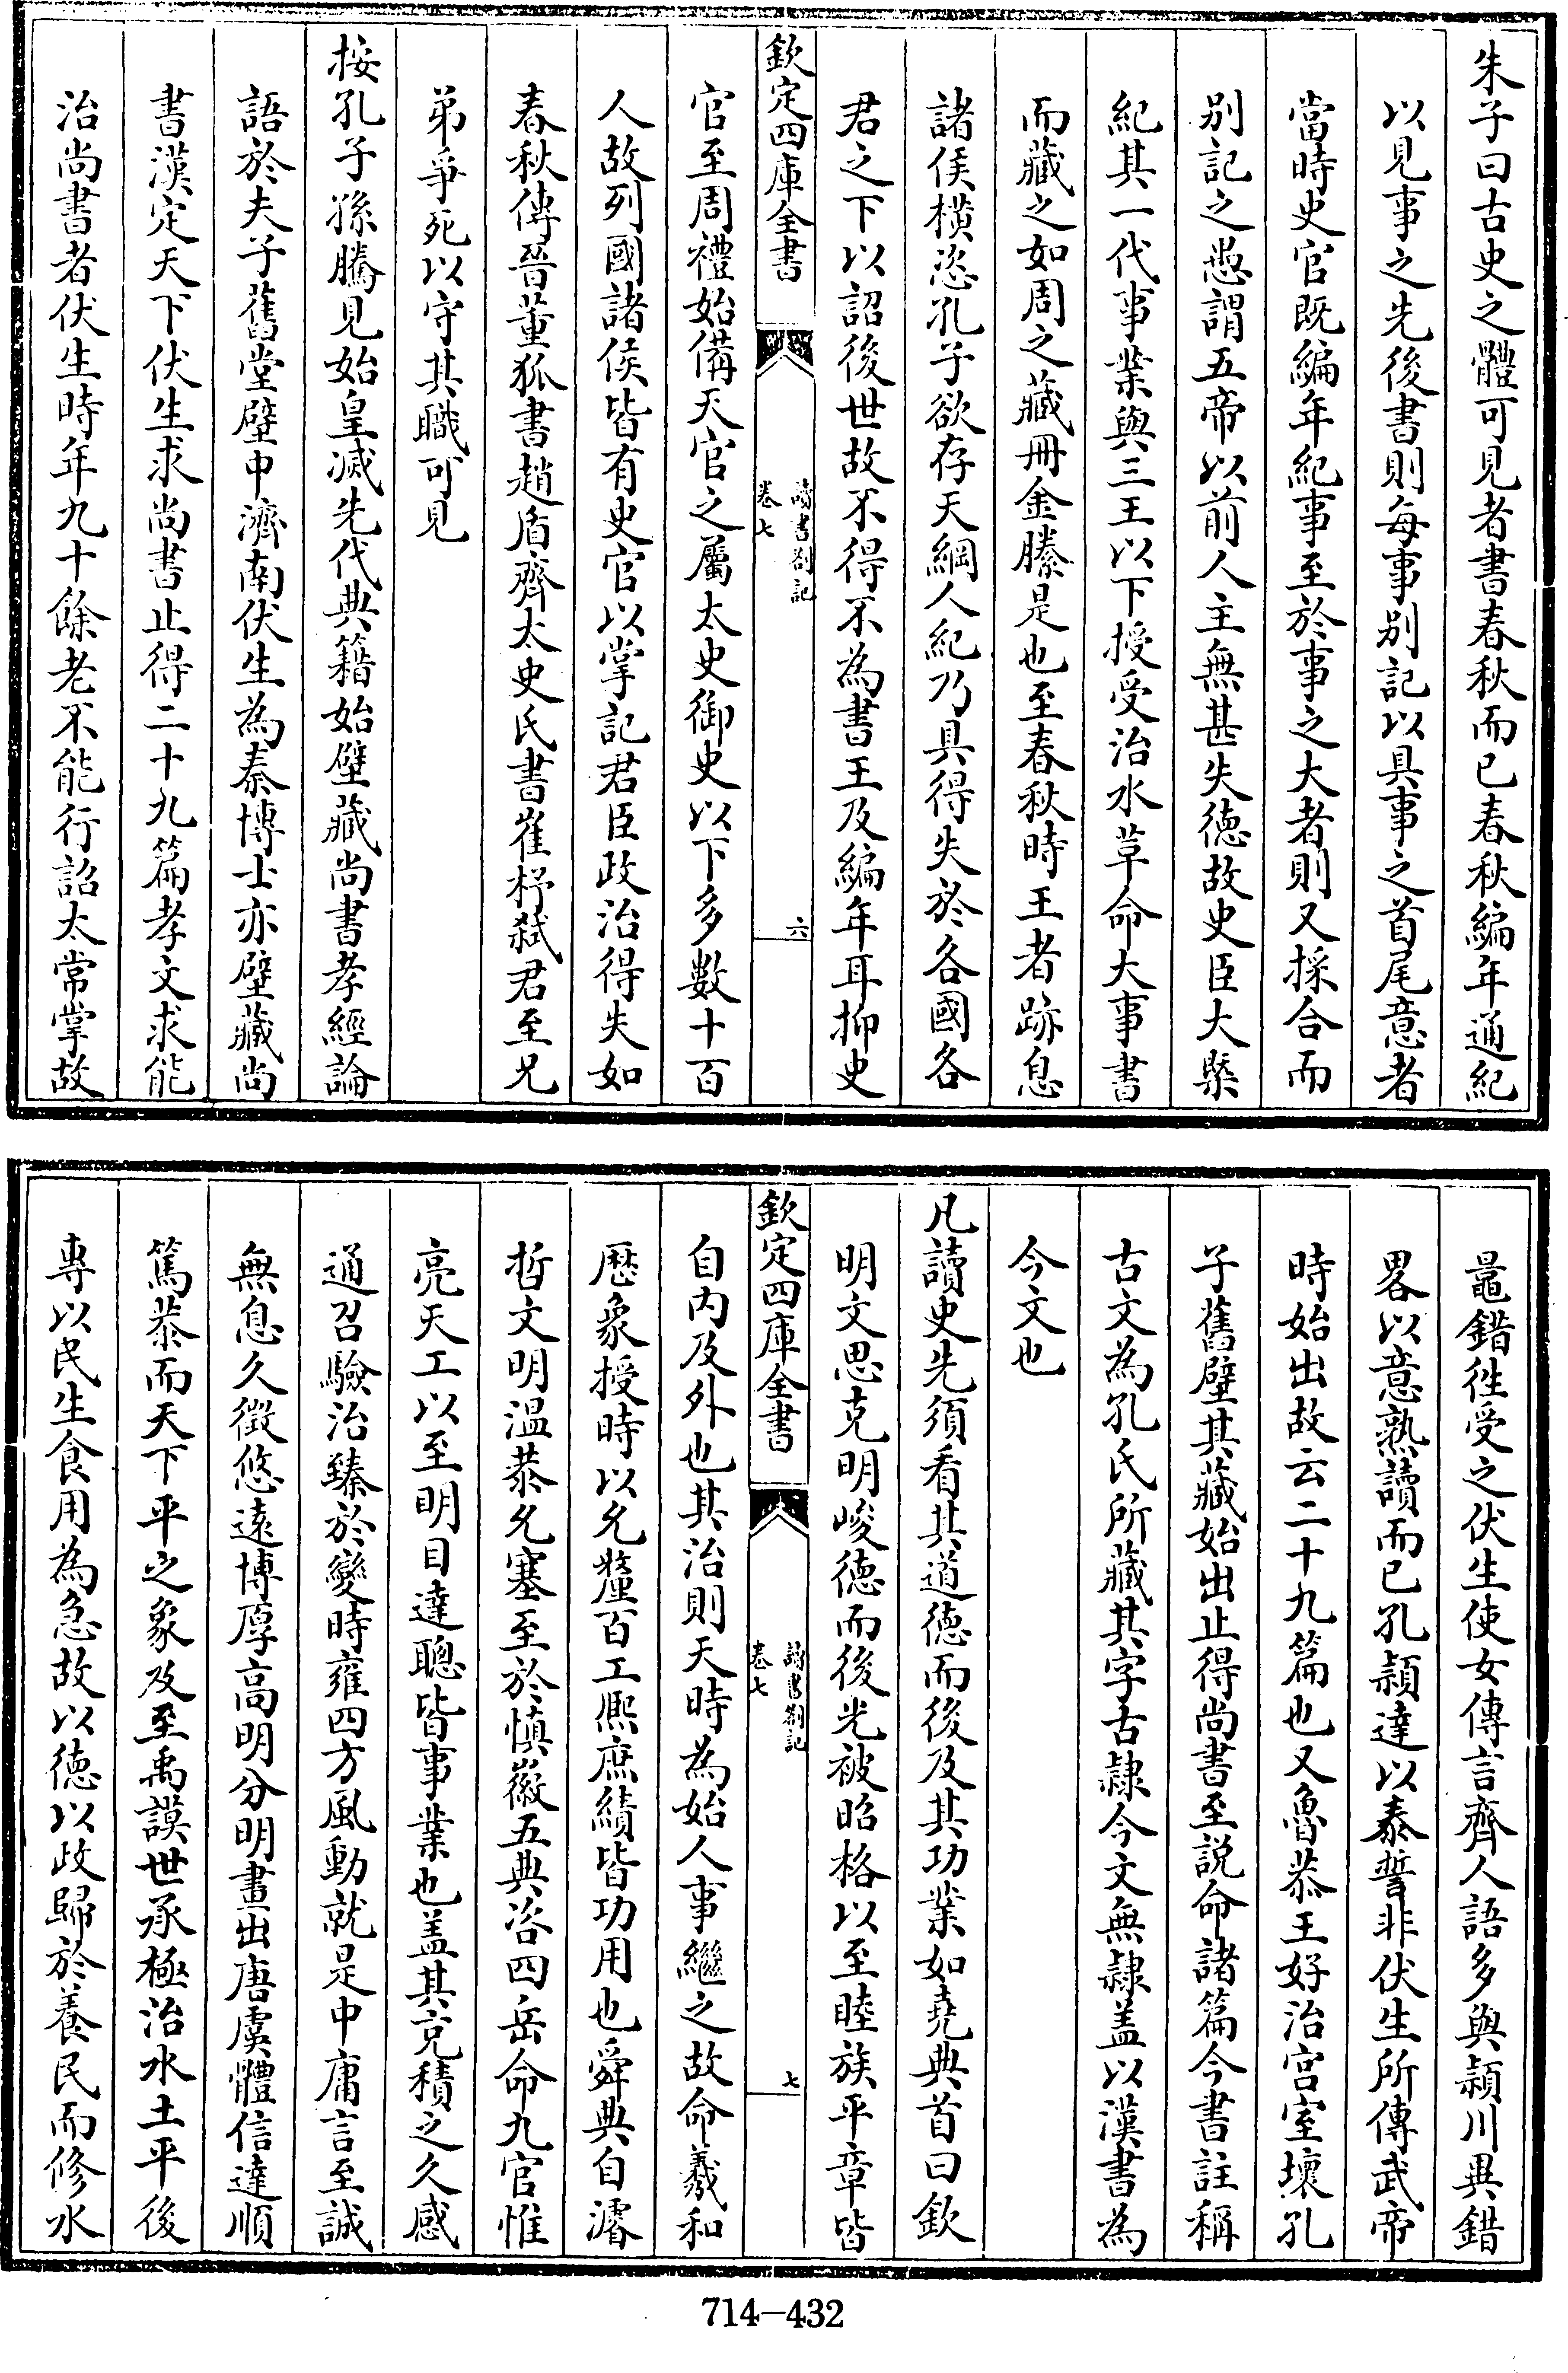 朱子曰古史之體可見者書春秋而已春秋編年通紀
以見事之先後書則每事別記以具事之首尾意者
當時史官既編年紀事至於事之大者則又採合而
別記之愚謂五帝以前人主無甚失徳故史臣大槩
紀其一代事業與三王以下授受治水草命大事書
而藏之如周之藏冊金縢是也至春秋時王者跡息
諸侯横恣孔子欲存天綱人紀乃具得失於各國各
君之下以詔後世故不得不為書王及編年耳抑史
欽定四庫全書
讀書劄記
卷七
六
官至周禮始備天官之屬太史御史以下多數十百
人故列國諸侯皆有史官以掌記君臣政治得失如
春秋傳晉董狐書趙盾齊太史氏書崔杼弑君至兄
弟爭死以守其職可見
按孔子孫騰見始皇滅先代典籍始壁藏尚書孝經論
語於夫子舊堂壁中濟南伏生為秦博士亦壁藏尚
書漢定天下伏生求尚書止得二十九篇孝文求能
治尚書者伏生時年九十餘老不能行詔太常掌故
鼂錯徃受之伏生使女傳言齊人語多與潁川異錯
畧以意熟讀而已孔頴達以泰誓非伏生所傳武帝
時始出故云二十九篇也又魯恭王好治宫室壞孔
子舊壁其藏始出止得尚書至説命諸篇今書註稱
古文為孔氏所藏其字古隷今文無隷盖以漢書為
今文也
凡讀史先須看其道徳而後及其功業如堯典首曰欽
明文思克明峻徳而後光被昭格以至睦族平章皆
欽定四庫全書
讀書劄記
卷七
七
自内及外也其治則天時為始人事繼之故命羲和
歴象授時以允釐百工熈庶績皆功用也舜典自濬
哲文明温恭允塞至於慎徽五典咨四岳命九官惟
亮天工以至明目達聰皆事業也盖其充積之久感
通召驗治臻於變時雍四方風動就是中庸言至誠
無息久徵悠逺博厚高明分明畫出唐虞體信達順
篤恭而天下平之象及至禹謨世承極治水土平後
專以民生食用為急故以徳以政歸於養民而修水
714—432